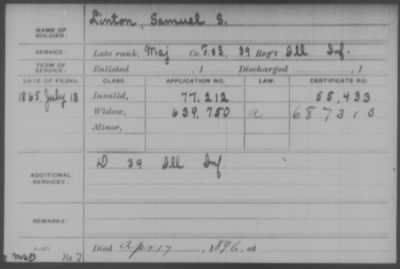 NAME OF SOLDIER: Linton, Samuel S.
SERVICE: Late rank, Maj Co. F.&S., 39 Reg't Ill Inf.
TERM OF SERVICE: Enlisted , 1 Discharged , 1
DATE OF FILING. CLASS. APPLICATION NO. LAW. CERTIFICATE NO.
1865, July 18 Invalid, 77,212 55,433
Widow, 639,750 a 687310
Minor,
ADDITIONAL SERVICES: D 39 Ill Inf
REMARKS:
Died Apr 17, 1896, at